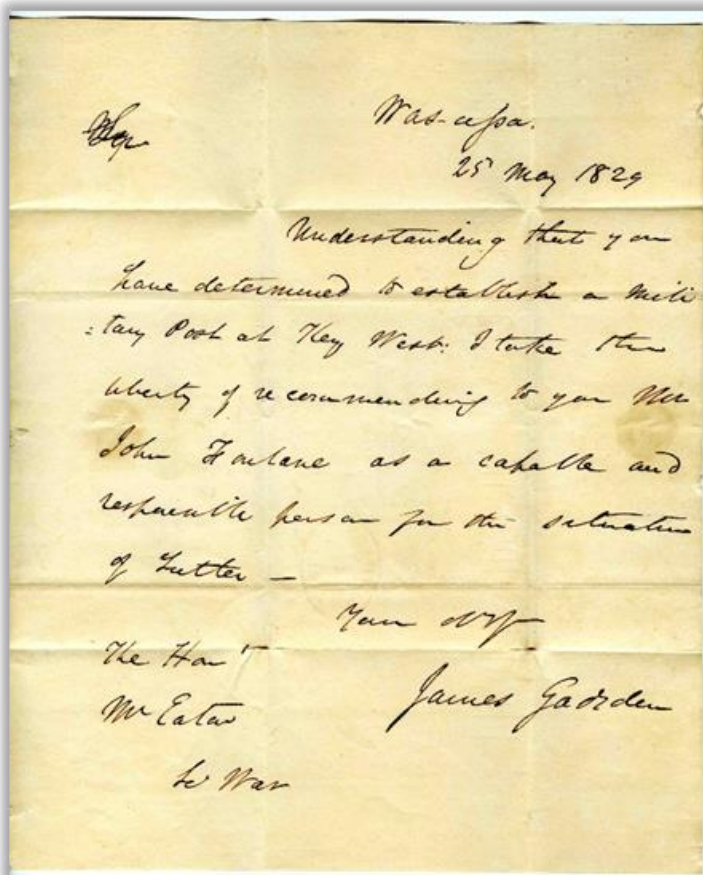 Was-cissa.
25 May 1829
Understanding that you
have determined to establish a mili
:tary Post at Key West: I take the
liberty of recommending to you Mr
John as a capable and
responsible person for the situation
of Sutler —
Your
The Honl
Mr Eaton
Sec War
James Gadsden